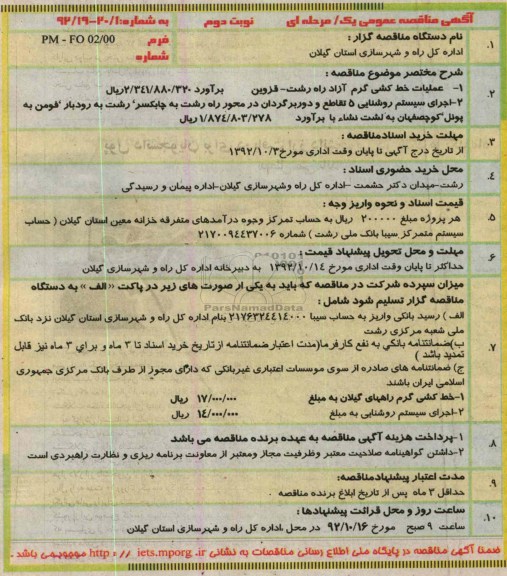 آگهی مناقصه عمومی یک/ مرحله ای نوبت دوم به شماره:۲۰/۱-۹۲/۱۹
۱. نام دستگاه مناقصه گزار :
اداره کل راه و شهرسازی استان گیلان
فرم PM - FO 02/00
شماره
۲. شرح مختصر موضوع مناقصه :
۱- عملیات خط کشی گرم آزاد راه رشت- قزوین برآورد ۲/۳۴۱/۸۸۰/۳۲۰ریال
۲-اجرای سیستم روشنایی ۵ تقاطع و دوربرگردان در محور راه رشت به چابکسر٬ رشت به رودبار ٬فومن به
پونل٬کوچصفهان به لشت نشاء با برآورد ۱/۸۷۴/۸۰۳/۲۷۸ریال
۳. مهلت خرید اسنادمناقصه :
از تاریخ درج آگهی تا پایان وقت اداری مورخ۱۳۹۲/۱۰/۳
۴. محل خرید حضوری اسناد :
رشت-میدان دکتر حشمت -اداره کل راه وشهرسازی گیلان-اداره پیمان و رسیدگی
۵. قیمت اسناد و نحوه واریز وجه :
هر پروژه مبلغ ۲۰۰۰۰۰ ریال به حساب تمرکز وجوه درآمدهای متفرقه خزانه معین استان گیلان ( حساب
سیستم متمرکز سیبا بانک ملی رشت ) شماره ۲۱۷۰۰۹۴۴۳۷۰۰۶
۶ مهلت و محل تحویل پیشنهاد قیمت :
حداکثر تا پایان وقت اداری مورخ ۱۳۹۲/۱۰/۱۴ به دبیرخانه اداره کل راه و شهرسازی گیلان
ParsNamadData
۷. میزان سپرده شرکت در مناقصه که باید به یکی از صورت های زیر در پاکت «الف » به دستگاه
مناقصه گزار تسلیم شود شامل :
الف ) رسید بانکی واریز به حساب سیبا ۲۱۷۶۳۲۴۴۱۴۰۰۰ بنام اداره کل راه و شهرسازی استان گیلان نزد بانک
ملی شعبه مرکزی رشت
ب)ضمانتنامه بانکی به نفع کارفرما(مدت اعتبار ضمانتنامه ازتاریخ خرید اسناد تا ۳ ماه و برای ۳ ماه نیز قابل
تمدید باشد )
ج) ضمانتنامه های صادره از سوی موسسات اعتباری غیربانکی که دارای مجوز از طرف بانک مرکزی جمهوری
اسلامی ایران باشند
۱-خط کشی گرم راههای گیلان به مبلغ ۱۷/۰۰۰/۰۰۰ ریال
۲-اجرای سیستم روشنایی به مبلغ ۱۴/۰۰۰/۰۰۰ ریال
۸. ۱-پرداخت هزینه آگهی مناقصه به عهده برنده مناقصه می باشد
۲-داشتن گواهینامه صلاحیت معتبر وظرفیت مجاز ومعتبر از معاونت برنامه ریزی و نظارت راهبردی است
۹. مدت اعتبار پیشنهادمناقصه:
حداقل ۳ ماه پس از تاریخ ابلاغ برنده مناقصه
۱۰. ساعت روز و محل قرائت پیشنهادها :
ساعت ۹ صبح مورخ ۹۲/۱۰/۱۶ در محل ٬اداره کل راه و شهرسازی استان گیلان
ضمنا آگهی مناقصه در پایگاه ملی اطلاع رسانی مناقصات به نشانی http : // iets.mporg .ir موجود می باشد .